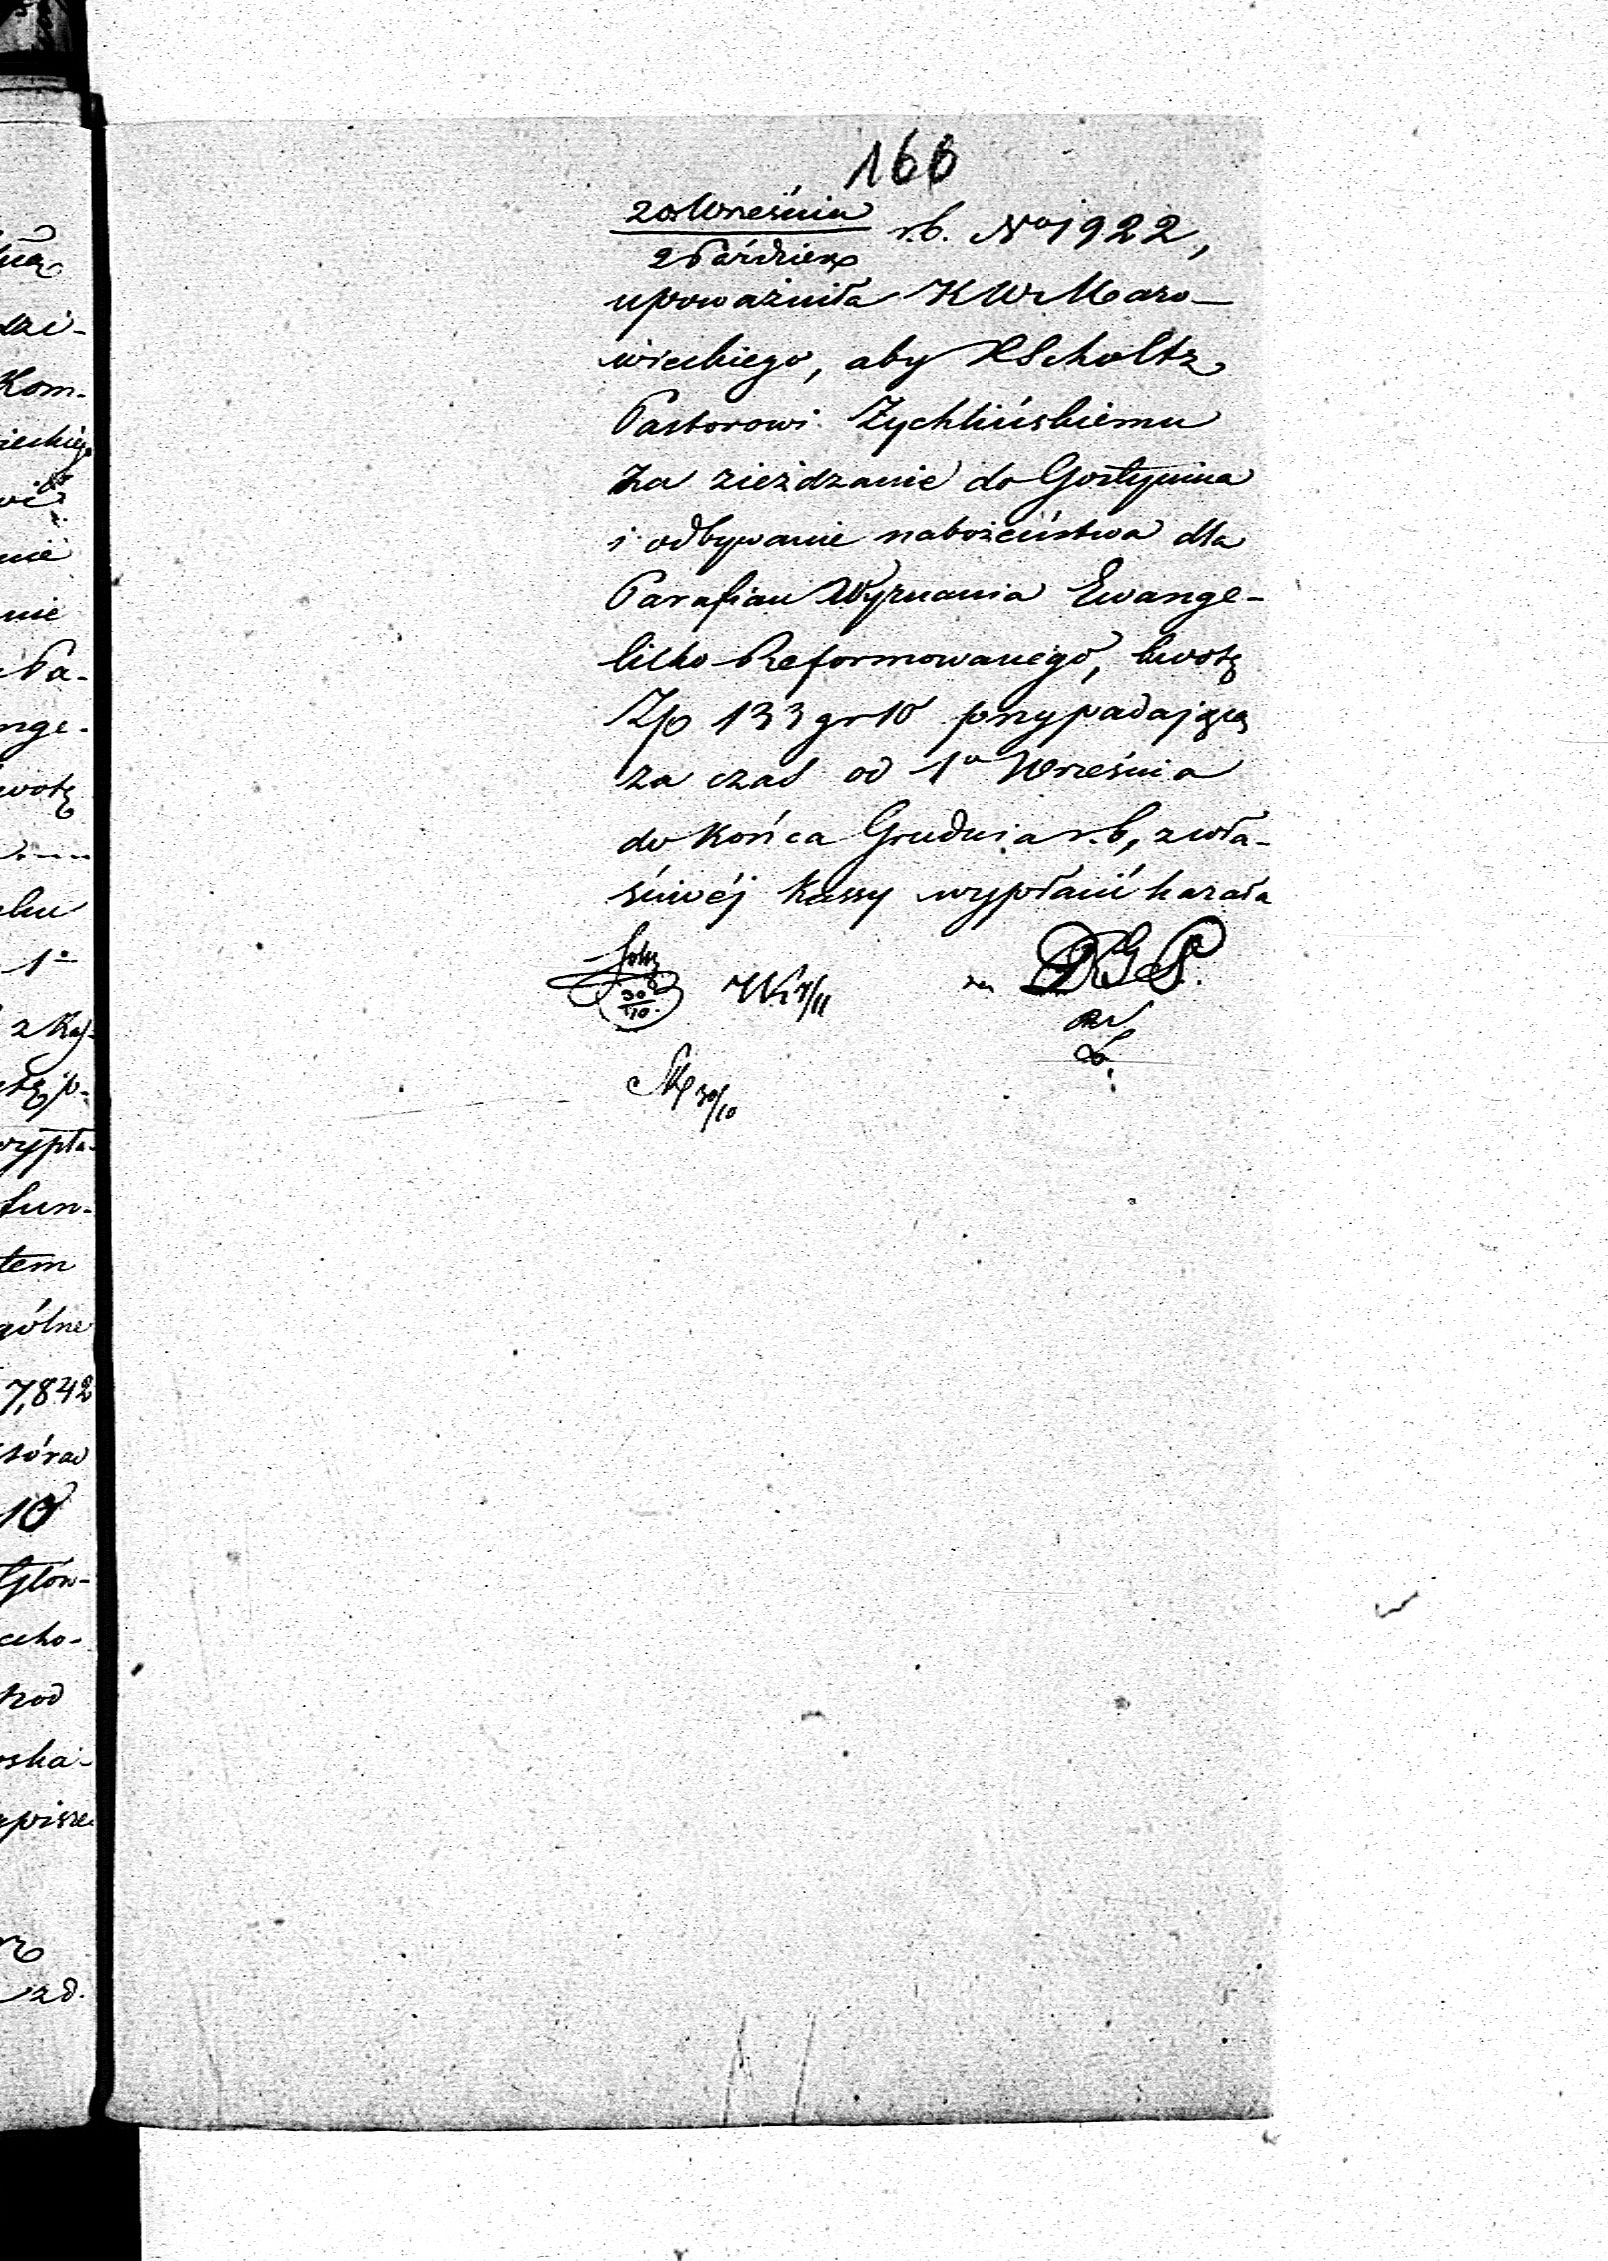 166
20 Września
2 Paździer r.b. No 1922,
upoważniła KWMazo-
wieckiego, aby XScholtz
Pastorowi Żychlińskiemu
za zieżdzanie do Gostynina
i odbywanie nabożeństwa dla
Parafian Wyznania Ewange-
licko Reformowanego, kwotę
Zp 133 gr 10 przypadającą
za czas od 1o Września
do końca Grudnia r.b, z wła-
śćiwéj Kassy wypłacić kazała
30/10
DGS.
30/10
Kom-
nie
nie
Pa-
nge-
wotę
1o
z Kas-
wypła-
fun-
tem
gólne
7,842
10
Głów-